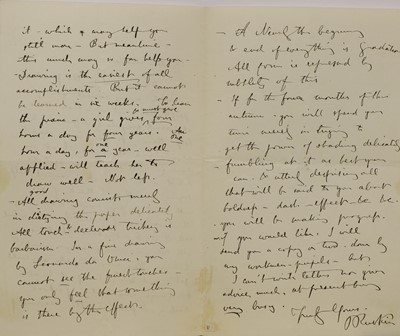 it - which may help you
still more - But meantime -
this much may so far help you -
Drawing is the easiest of all
accomplishments. But it cannot
be learned in six weeks. To learn
the piano - a girl must give four
hours a day for four years. An
one
hour a day, for one year - well
applied - will teach her to
draw well - Not less.
- All good drawing consists merely
in dirtying the paper delicately
All touch declared touching is
barbarism. In a fine drawing
by Leonardo da Vinci, you
cannot see the finest touches -
you only feel that something
is there by the effect.
- A Nearly the beginning
to end of everything is Gradation
All form is expressed by
subtlety of this
- If for the four months of the
autumn, you will spend your
time merely in trying to
get the power of shading delicately
- fumbling at it as best you
can - utterly despising all
that will be said to you about
boldness - dash - effect &c &c.
- you will be making progress.
- If you would like, I will
send you a copy or two done by
my workmen-pupils - but
I can't write letters nor give
advice, much, at present being
very busy. Truly Yours,
J Ruskin